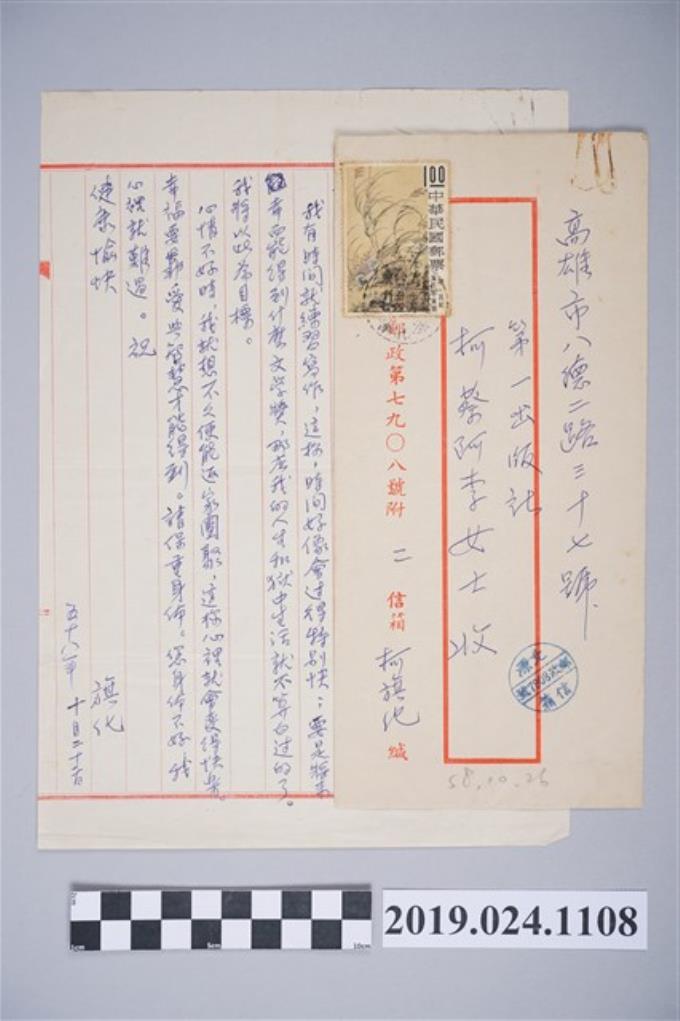 高雄市八德二路三十七號
第一出版社
柯蔡阿李女士收
郵政第七九〇八號附二信箱柯旗化緘
1.00
中華民國郵票
58.10.26
我有時間就練習寫作,這樣,時間好像會过得特別快;要是將來
幸而能得到什麽文学獎,那麽我的人生和狱中生活就不算白过的了。
我将以此為目標。
心情不好時,我就想不久便能返家團聚,這樣心裡就會变得快樂。
幸福要靠愛與智慧才能得到。請保重身体。您身体不好我
心裡就難過。祝
健康愉快
旗化
五十八年十月二十二日
2019.024.1108
1cm
5cm
10cm